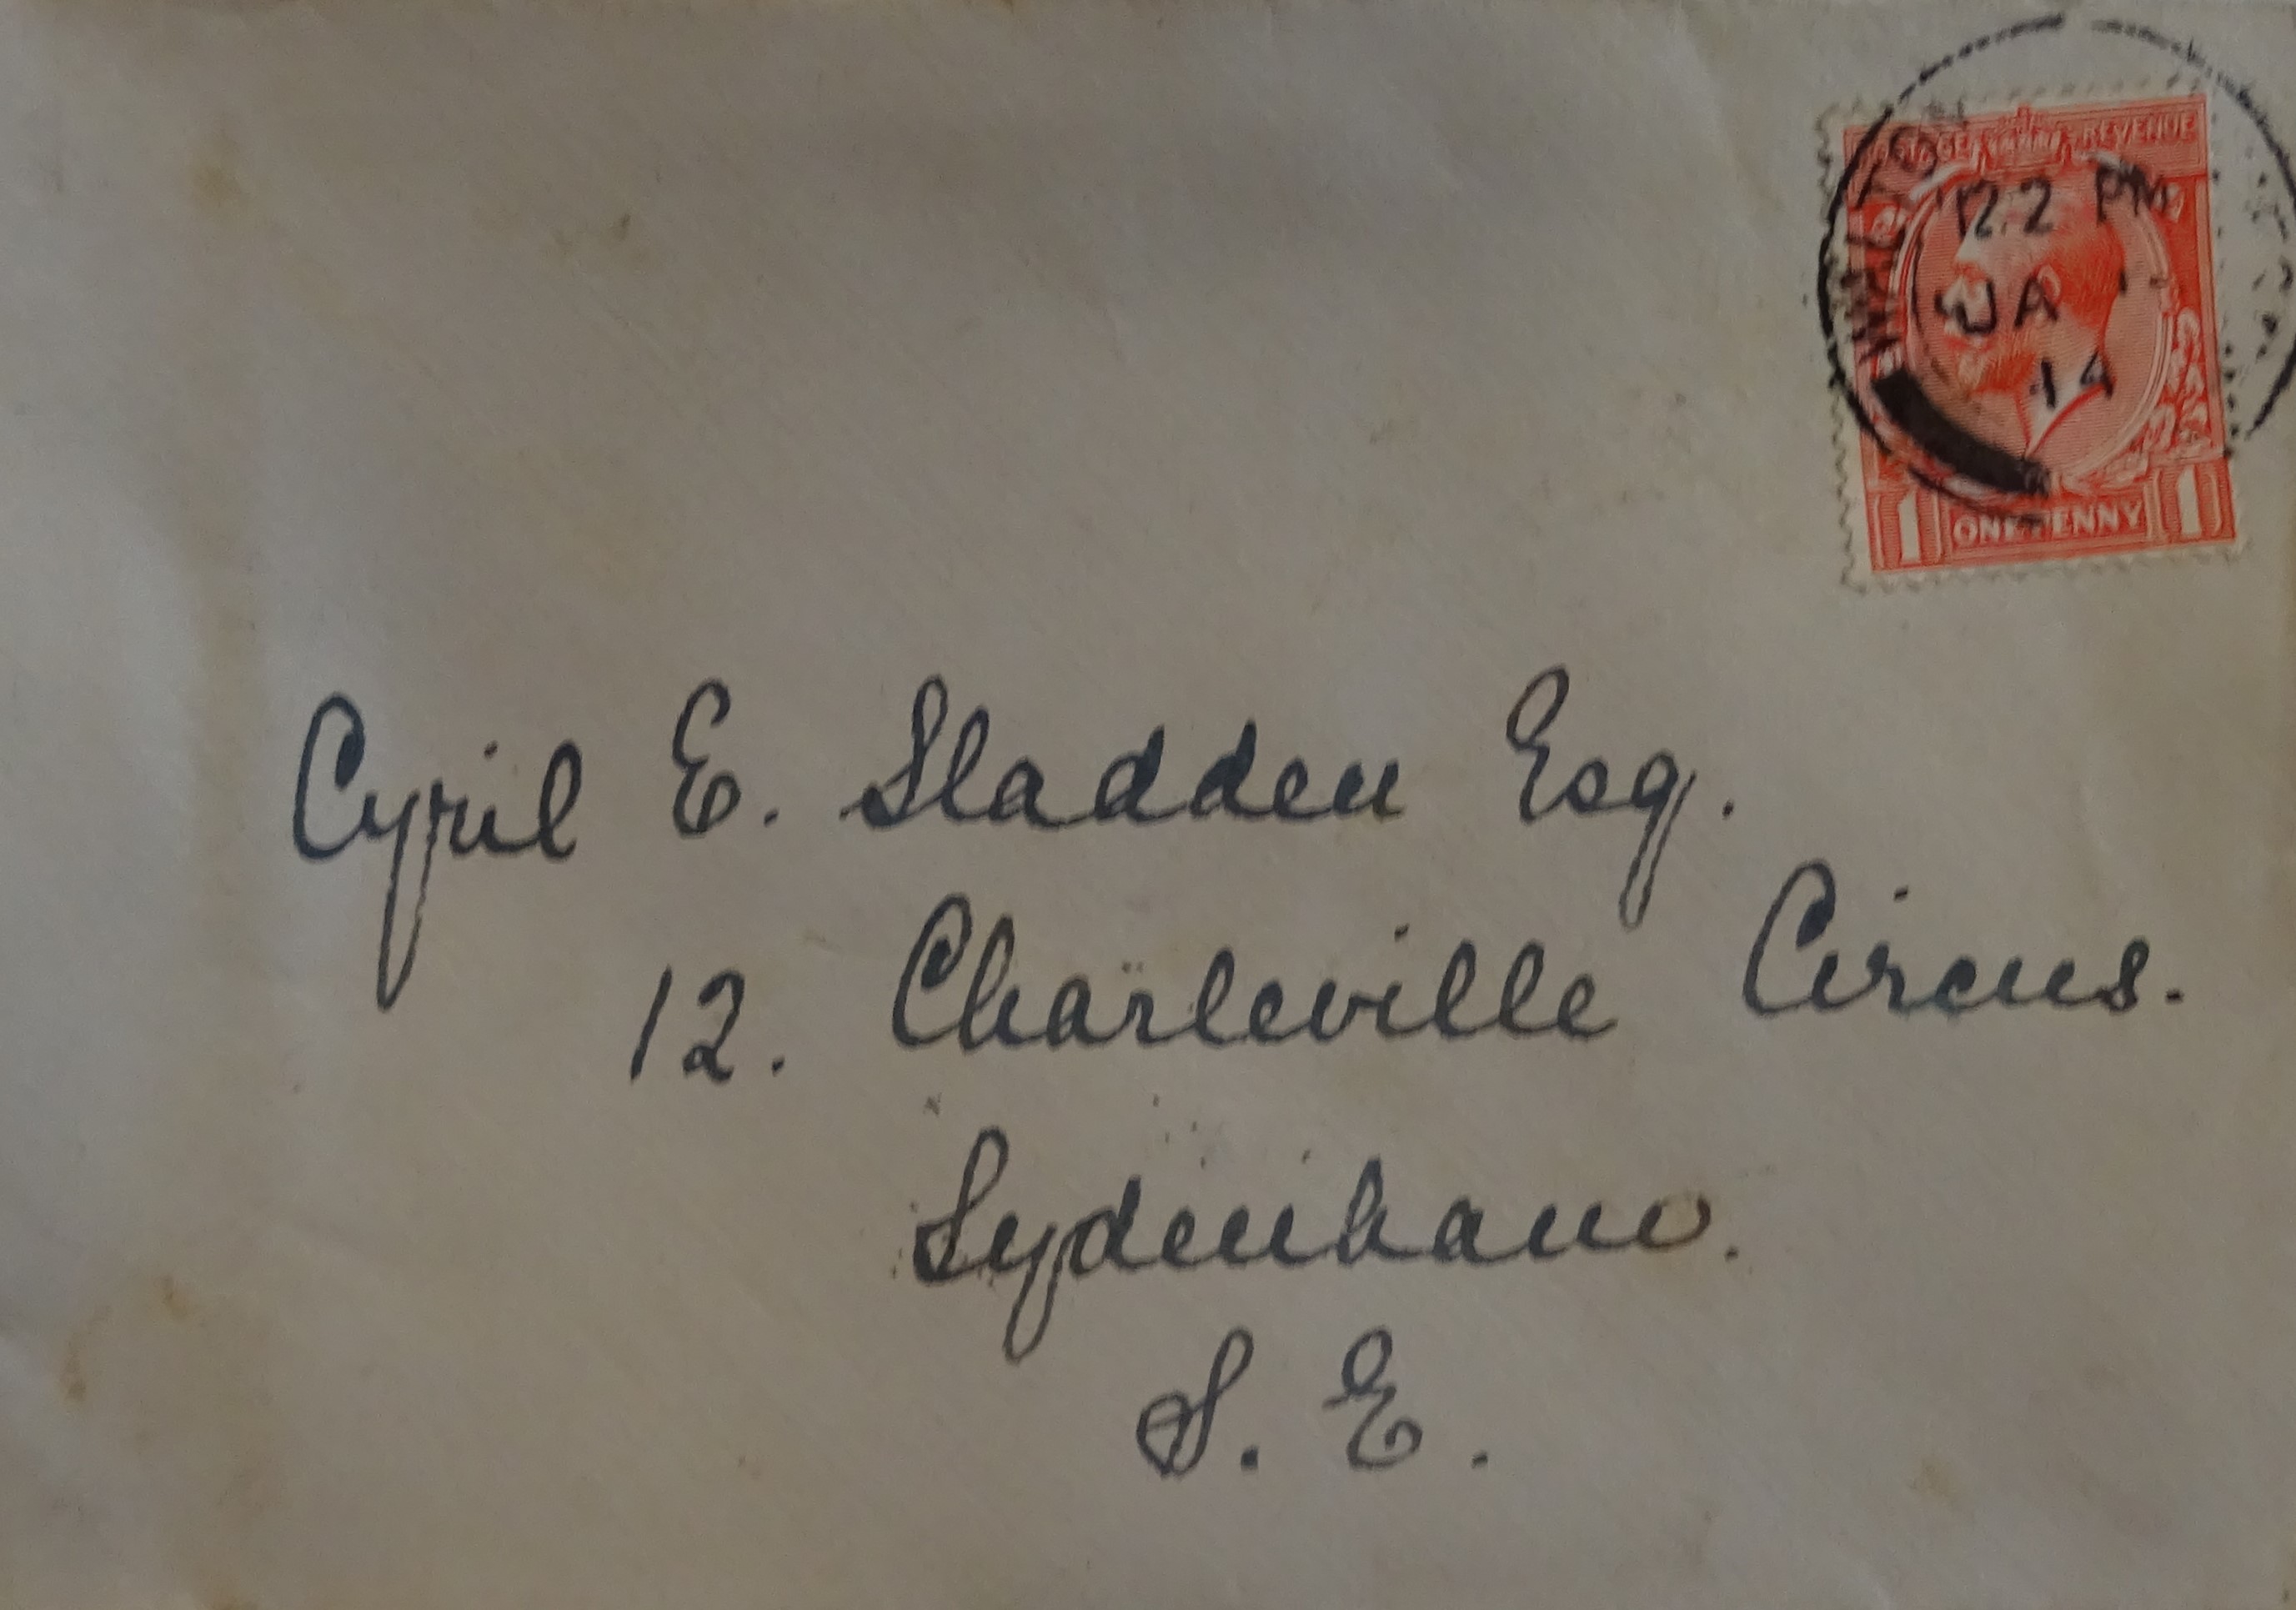 POSTAGE REVENUE
WALTON
12.2 PM
JA
14
1 ONE PENNY 1
Cyril E. Sladden Esq.
12. Charleville Circus.
Sydenham.
S. E.